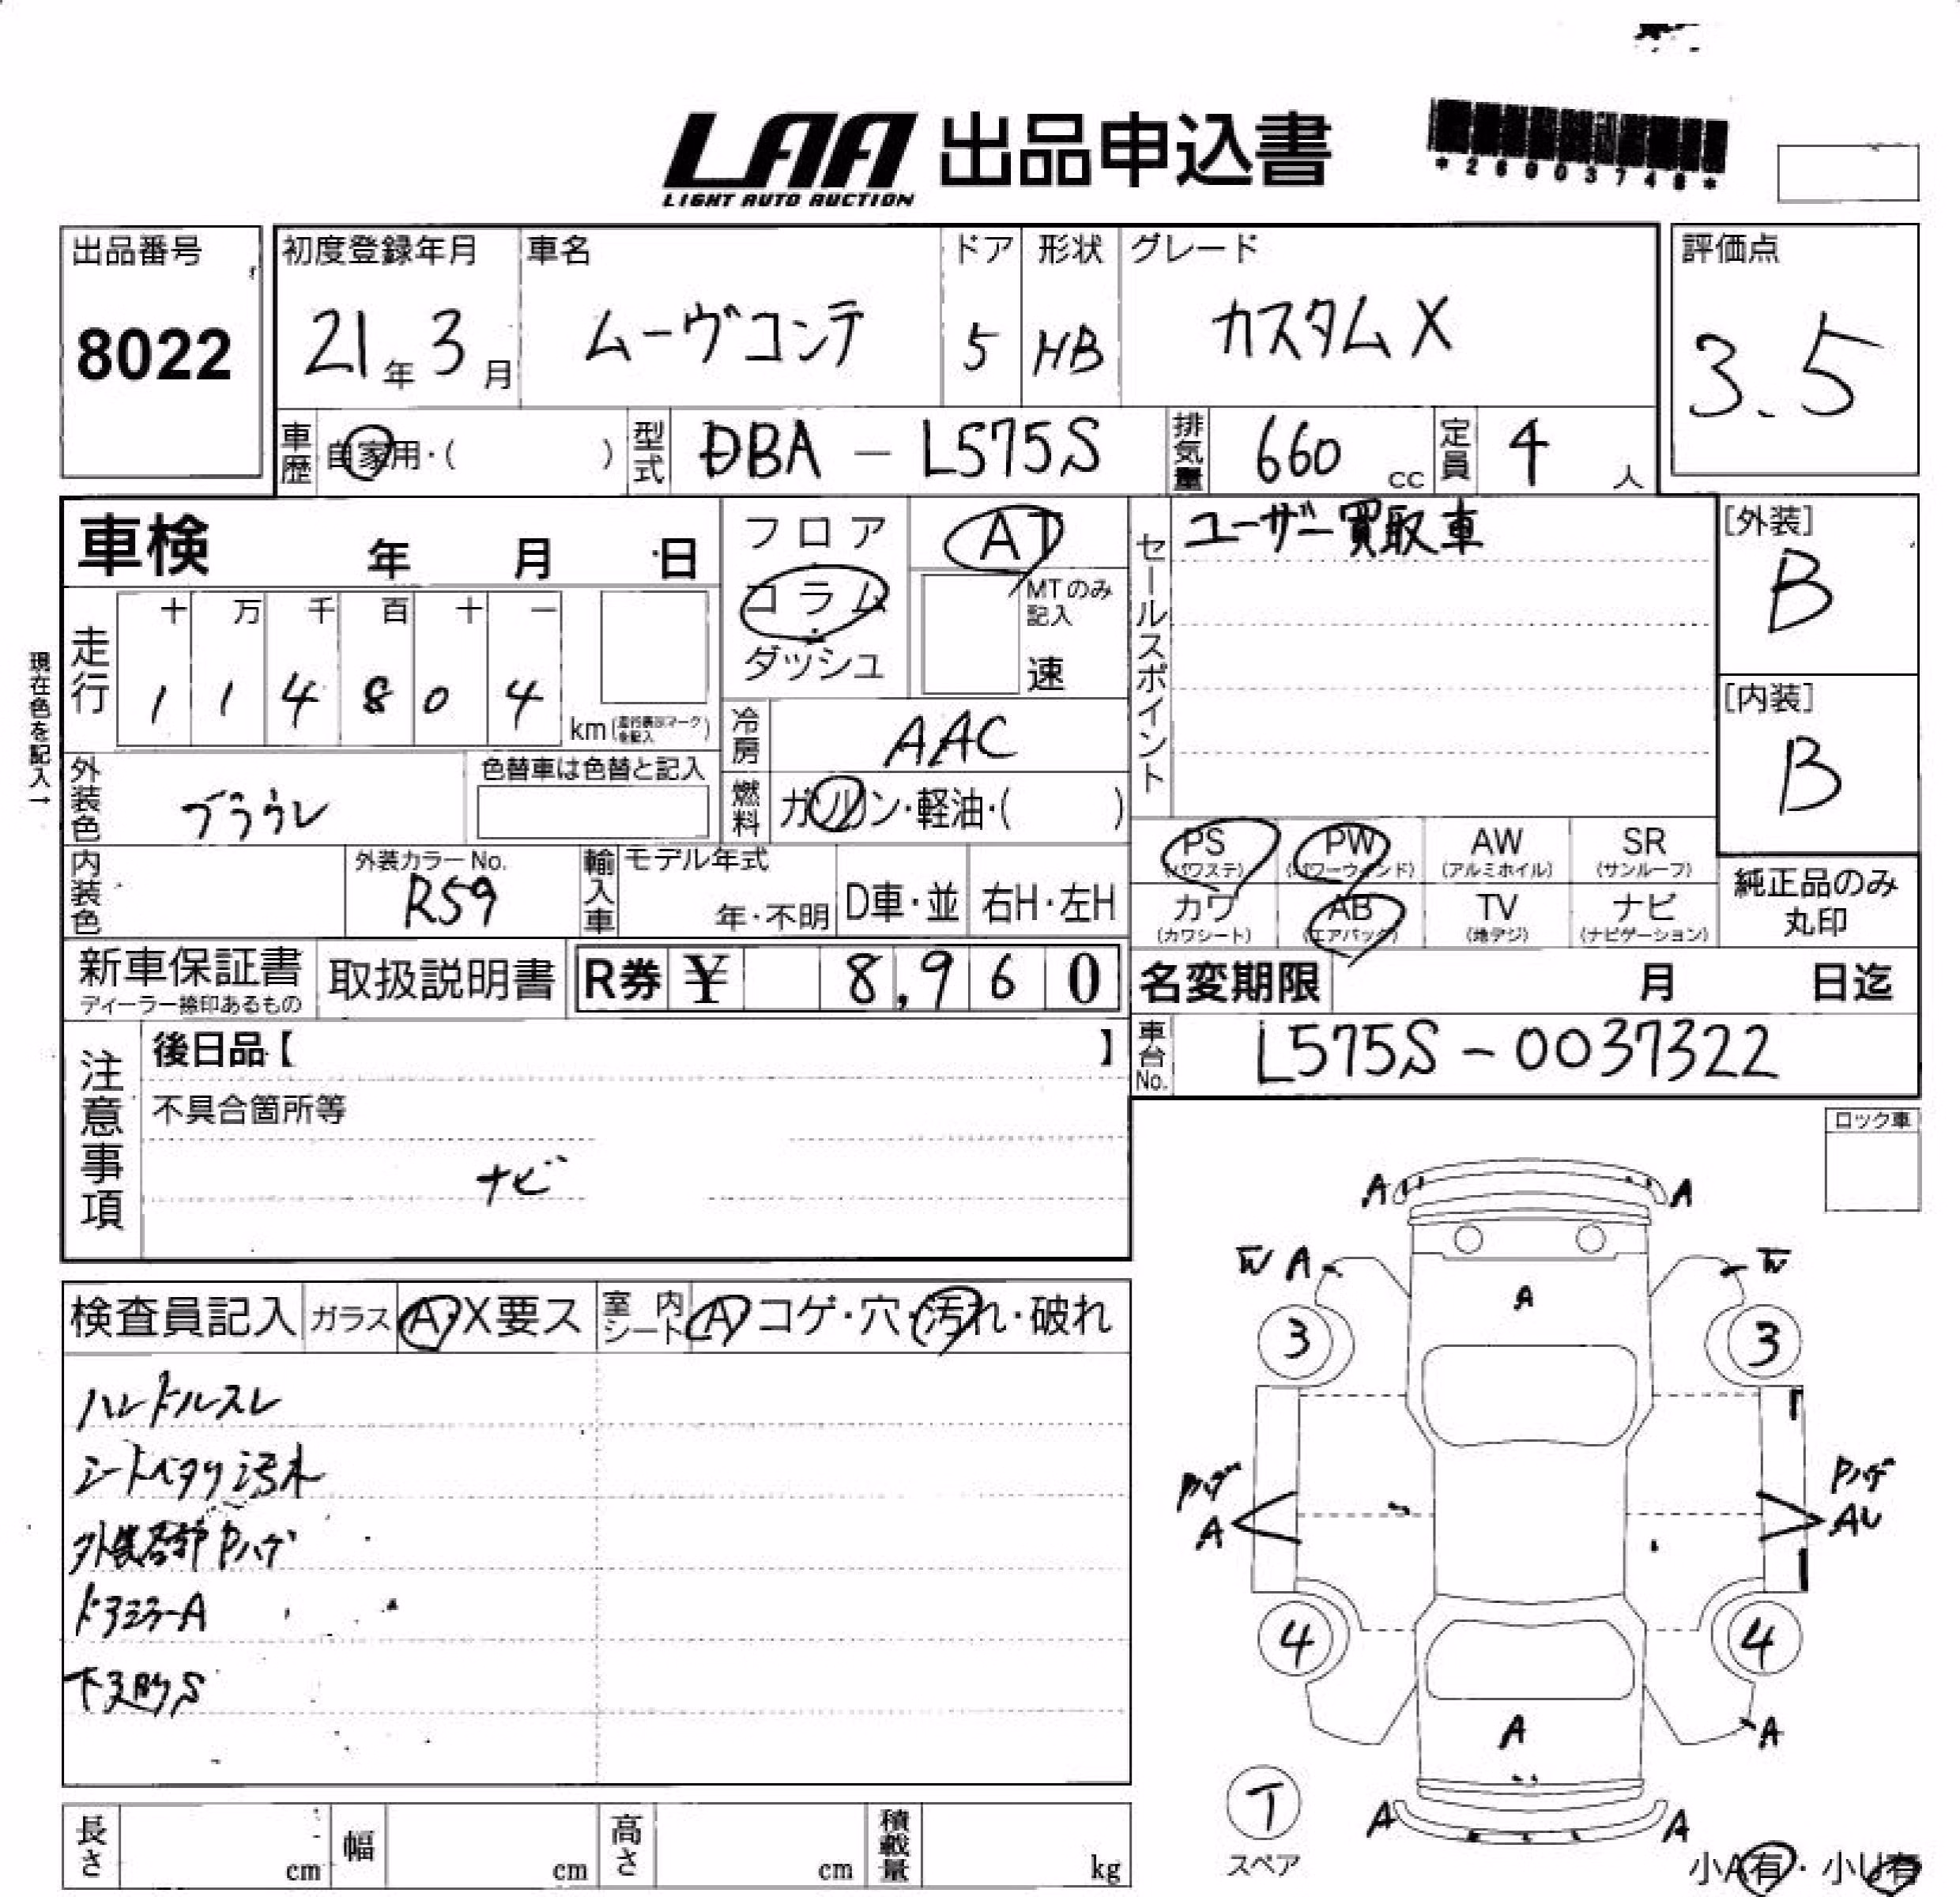 LAA 出品申込書
LIGHT AUTO AUCTION
出品番号
8022
初度登録年月
21年3月
車名
ムーヴコンテ
ドア
5
形状
HB
グレード
カスタムX
評価点
3.5
車歴 自家用・( )
型式 DBA - L575S
排気量 660 cc
定員 4 人
車検 年 月 日
走行
十 万 千 百 十 一
1 1 4 8 0 4
km(走行表示マークを記入)
現在色を記入→
外装色
色替車は色替と記入
内装色
外装カラーNo.
R59
輸入車
モデル年式
年・不明
D車・並
右H・左H
フロア
コラム
ダッシュ
AT
MTのみ記入
速
冷房 AAC
燃料 ガソリン・軽油・( )
セールスポイント
ユーザー買取車
[外装]
B
[内装]
B
PS (パワステ)
PW (パワーウインド)
AW (アルミホイル)
SR (サンルーフ)
カワ (カワシート)
AB (エアバック)
TV (地デジ)
ナビ (ナビゲーション)
純正品のみ
丸印
新車保証書
ディーラー捺印あるもの
取扱説明書
R券 ¥ 8,960
名変期限 月 日迄
車台No. L575S - 0037322
注意事項
後日品【 】
不具合箇所等
ナビ
ロック車
検査員記入
ガラス A・X要ス
室内シート A コゲ・穴・汚れ・破れ
ハンドルスレ
シートベタツ汚れ
外装各部Pハゲ
ドアミラーA
下廻りS
A A
W A W
A
3 3
Pハゲ Pハゲ
A AU
4 4
A
A
T
スペア
A A
小A有・小U有
長さ cm
幅 cm
高さ cm
積載量 kg